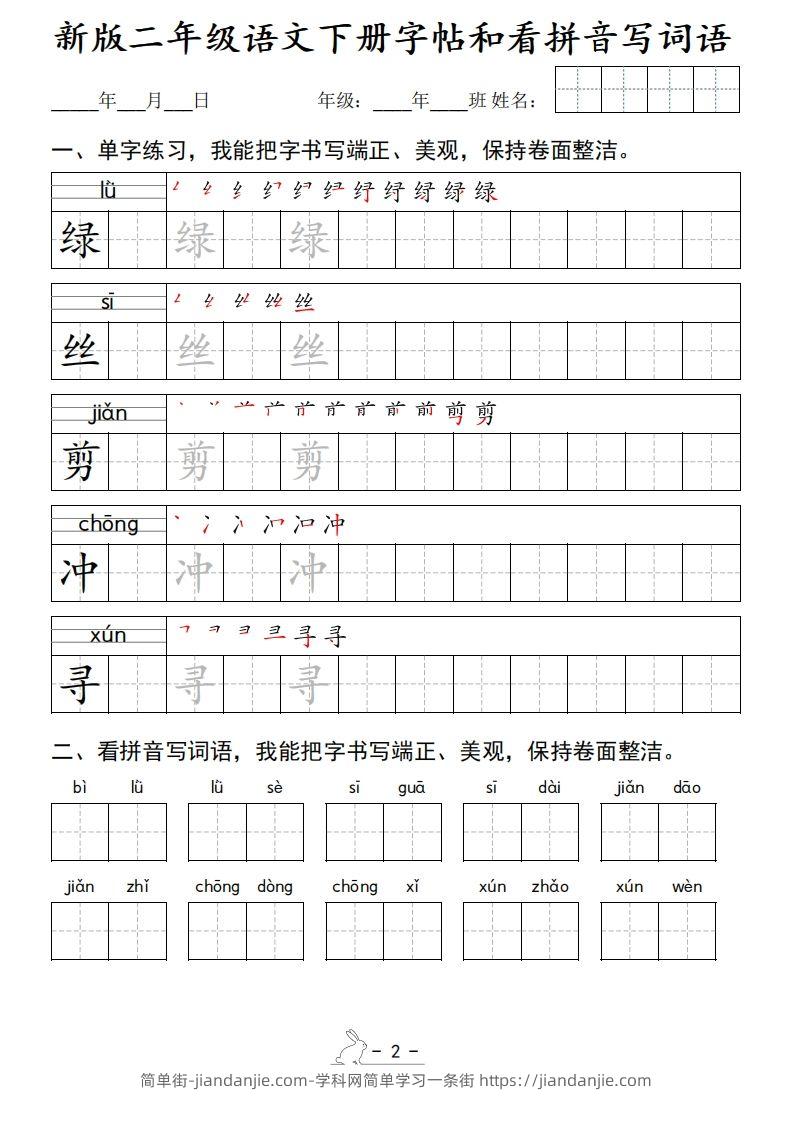 新版二年级语文下册字帖和看拼音写词语
_____年___月___日 年级：____年____班 姓名：
一、单字练习，我能把字书写端正、美观，保持卷面整洁。
lǜ
绿 绿 绿
sī
丝 丝 丝
jiǎn
剪 剪 剪
chōng
冲 冲 冲
xún
寻 寻 寻
二、看拼音写词语，我能把字书写端正、美观，保持卷面整洁。
bì lǜ lǜ sè sī guā sī dài jiǎn dāo
jiǎn zhǐ chōng dòng chōng xǐ xún zhǎo xún wèn
- 2 -
简单街-jiandanjie.com-学科网简单学习一条街 https://jiandanjie.com